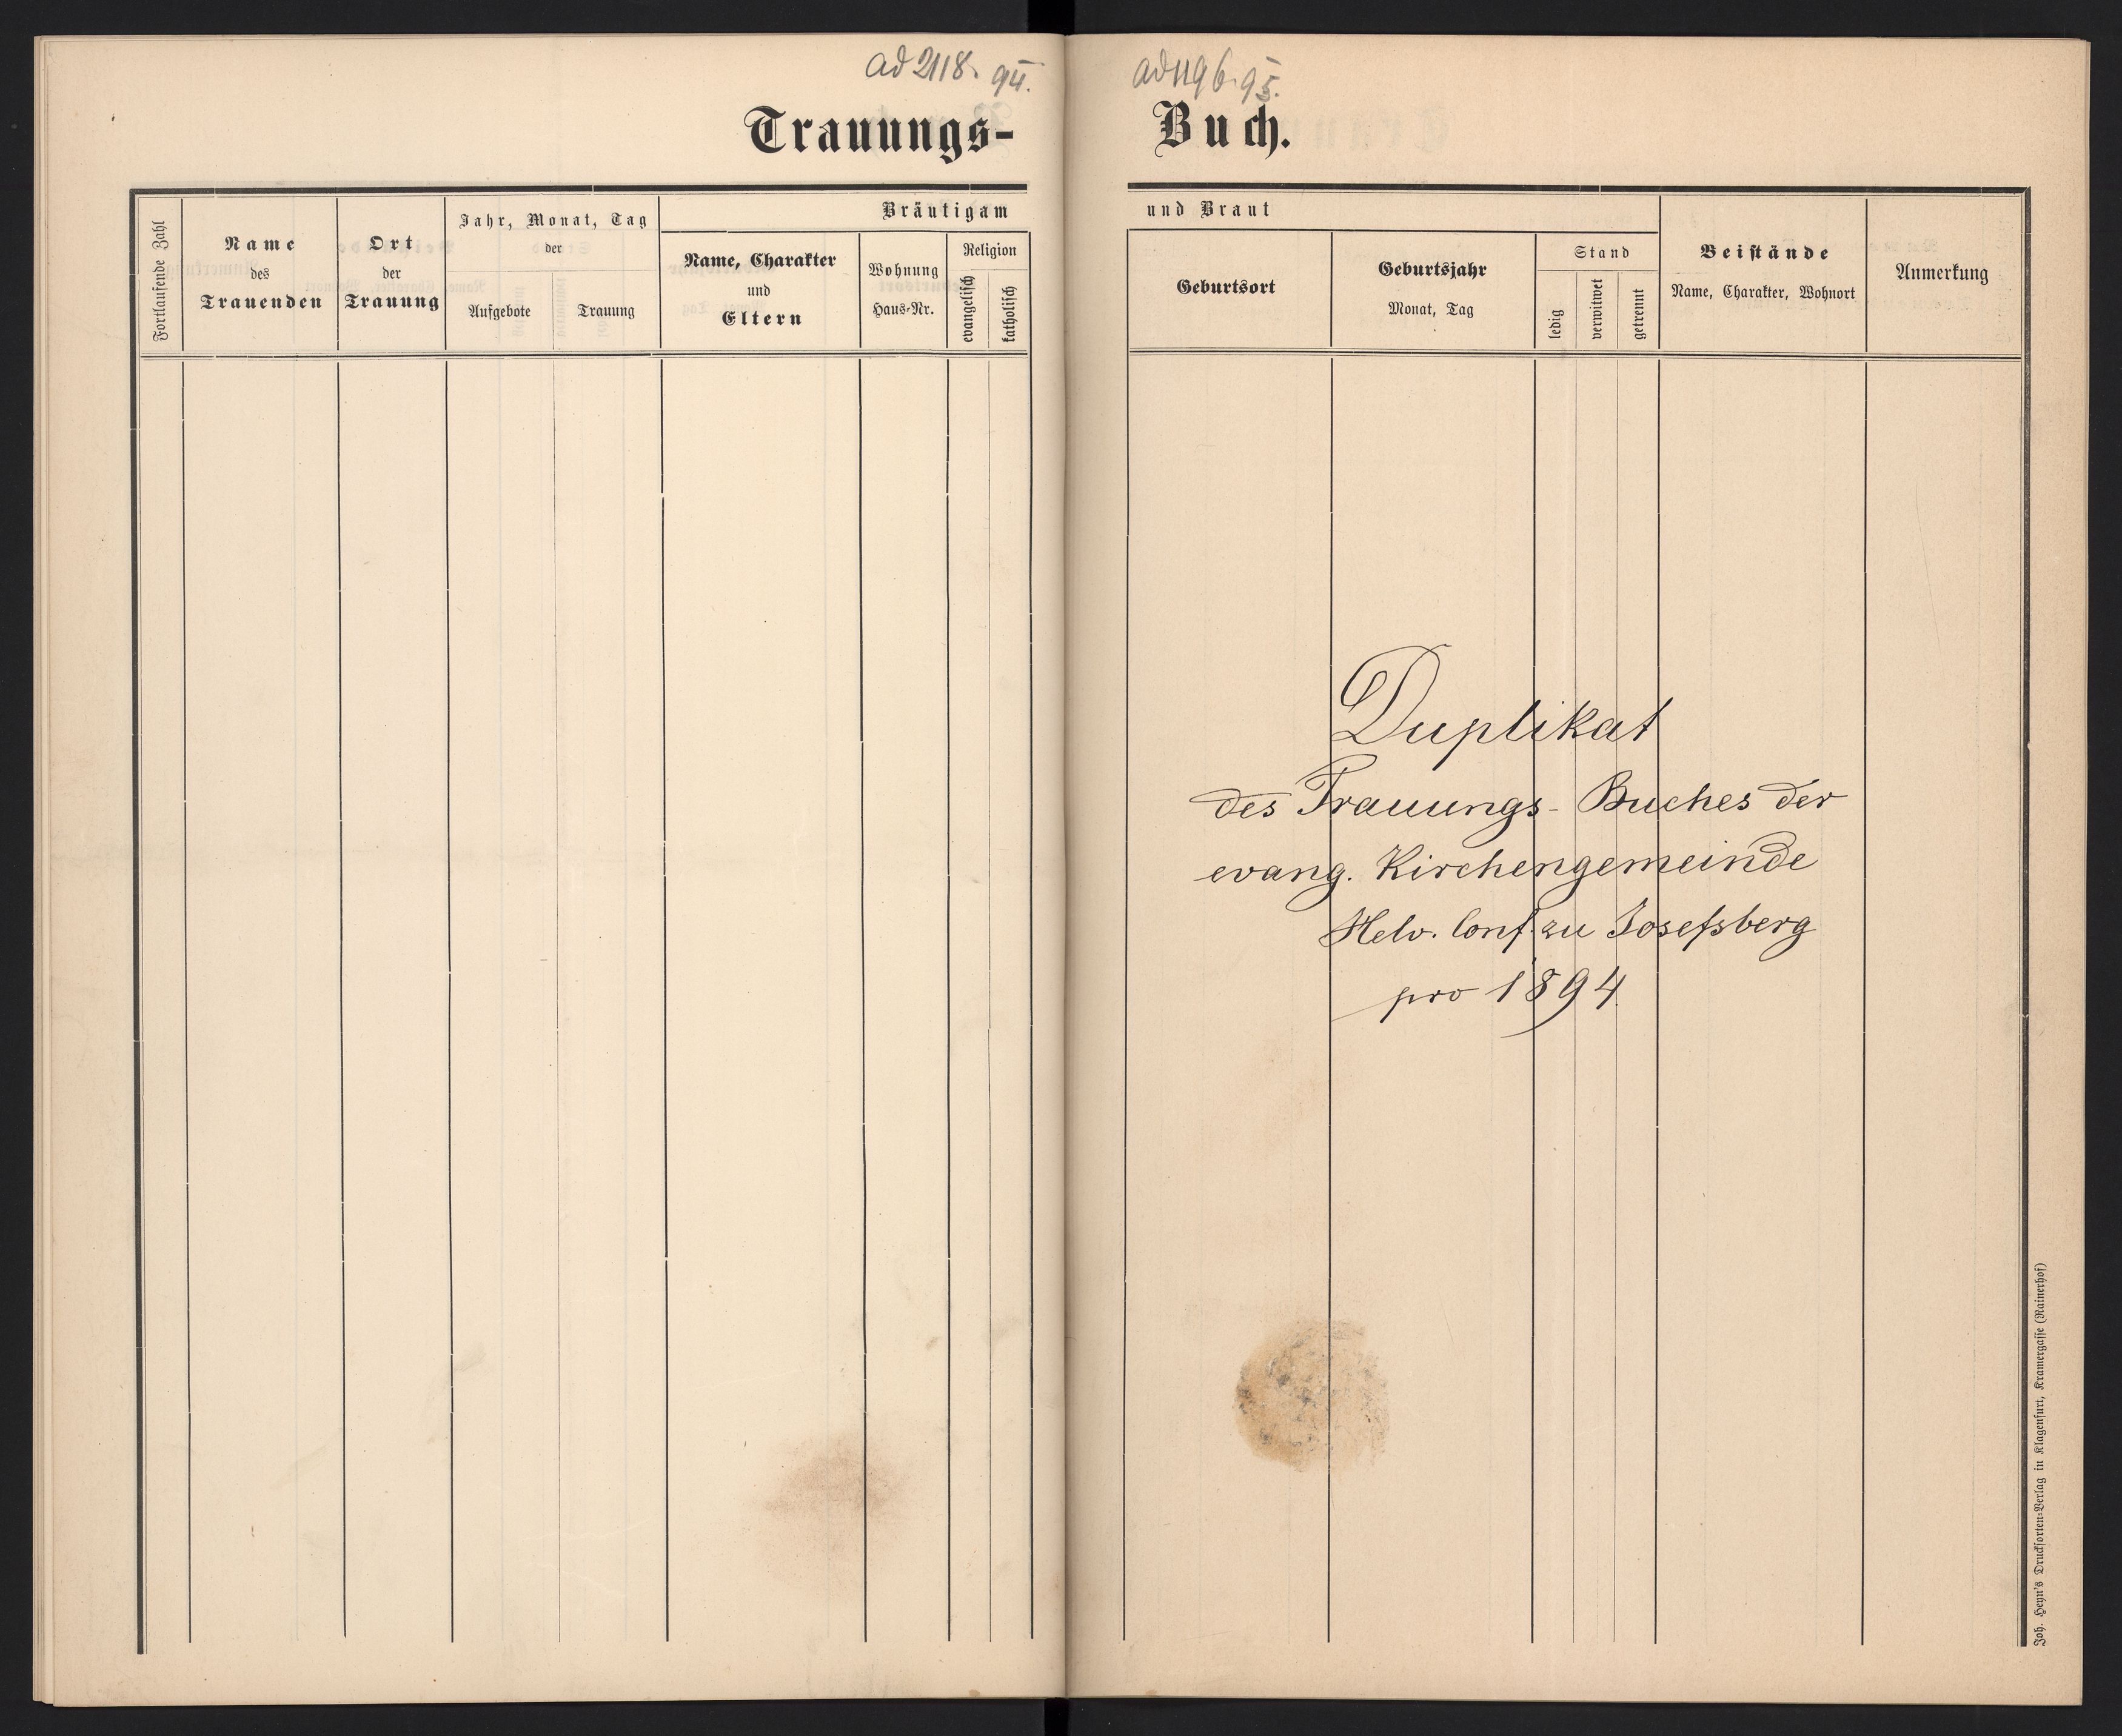 ad 2118. 94.
ad 1196. 95.
Trauungs-
Buch.
Fortlaufende Zahl
Name
des
Trauenden
Ort
der
Trauung
Jahr, Monat, Tag
der
Aufgebote
Trauung
Bräutigam
Name, Charakter
und
Eltern
Wohnung
Haus-Nr.
Religion
evangelisch
katholisch
und Braut
Geburtsort
Geburtsjahr
Monat, Tag
Stand
ledig
verwitwet
getrennt
Beistände
Name, Charakter, Wohnort
Anmerkung
Duplikat
des Trauungs-Buches der
evang. Kirchengemeinde
Helv. Conf. zu Josefsberg
pro 1894.
Joh. Heyn's Drucksorten-Verlag in Klagenfurt, Kramergasse (Rainerhof)